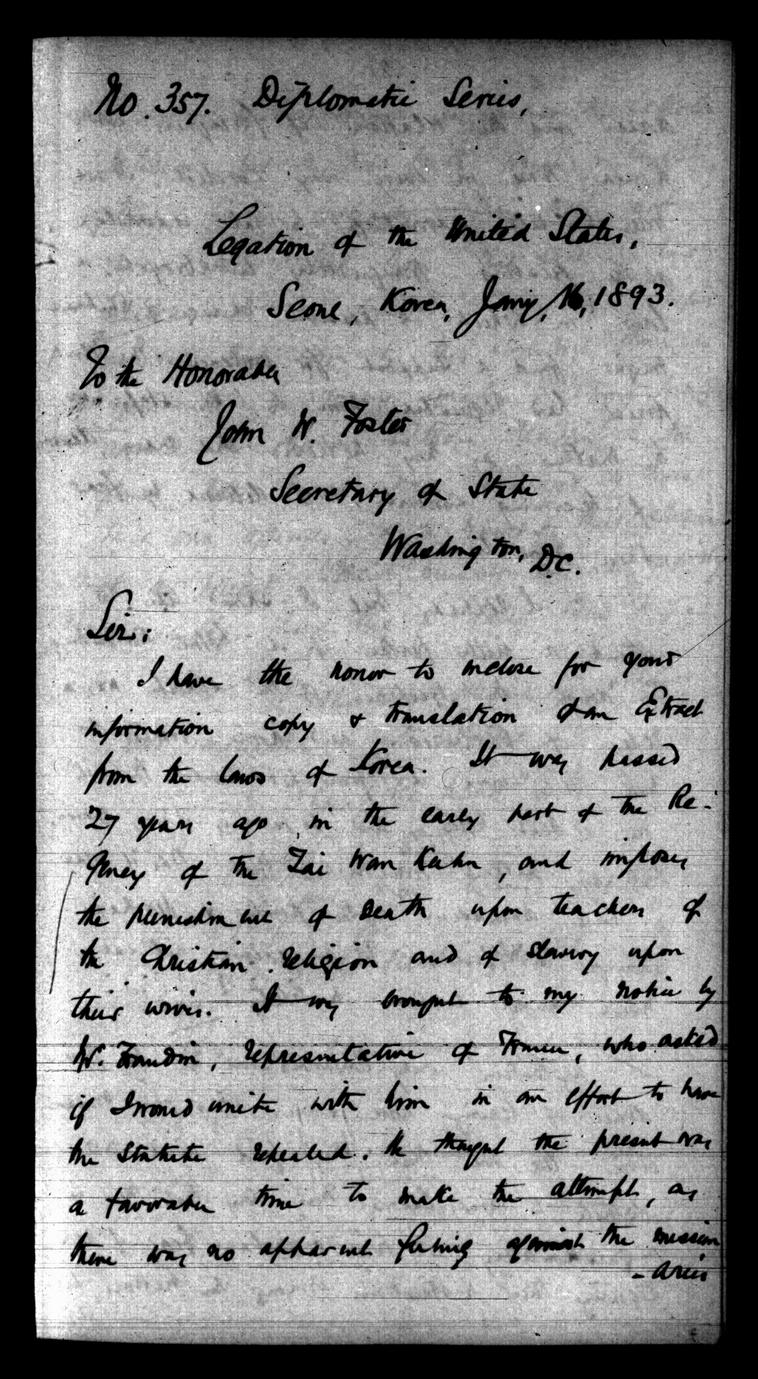 No. 357. Diplomatic Series,
Legation of the United States,
Seoul, Korea, Jan'y, 16, 1893.
To the Honorable
John W. Foster
Secretary of State
Washington, D.C.
Sir:
I have the honor to inclose for your
information copy & translation of an Extract
from the laws of Korea. It was passed
27 years ago, in the early part of the Re-
gency of the Tai Wan Kuhn, and imposes
the punishment of Death upon teachers of
the Christian religion and of slavery upon
their wives. It was brought to my notice by
M. Frandin, representative of France, who asked
if I would unite with him in an effort to have
the Statute repealed. He thought the present was
a favorable time to make the attempt, as
there was no apparent feeling against the mission
-aries